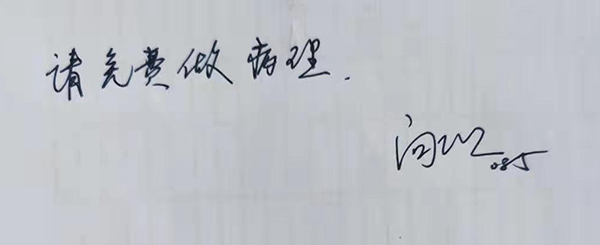 请免费做病理.
085